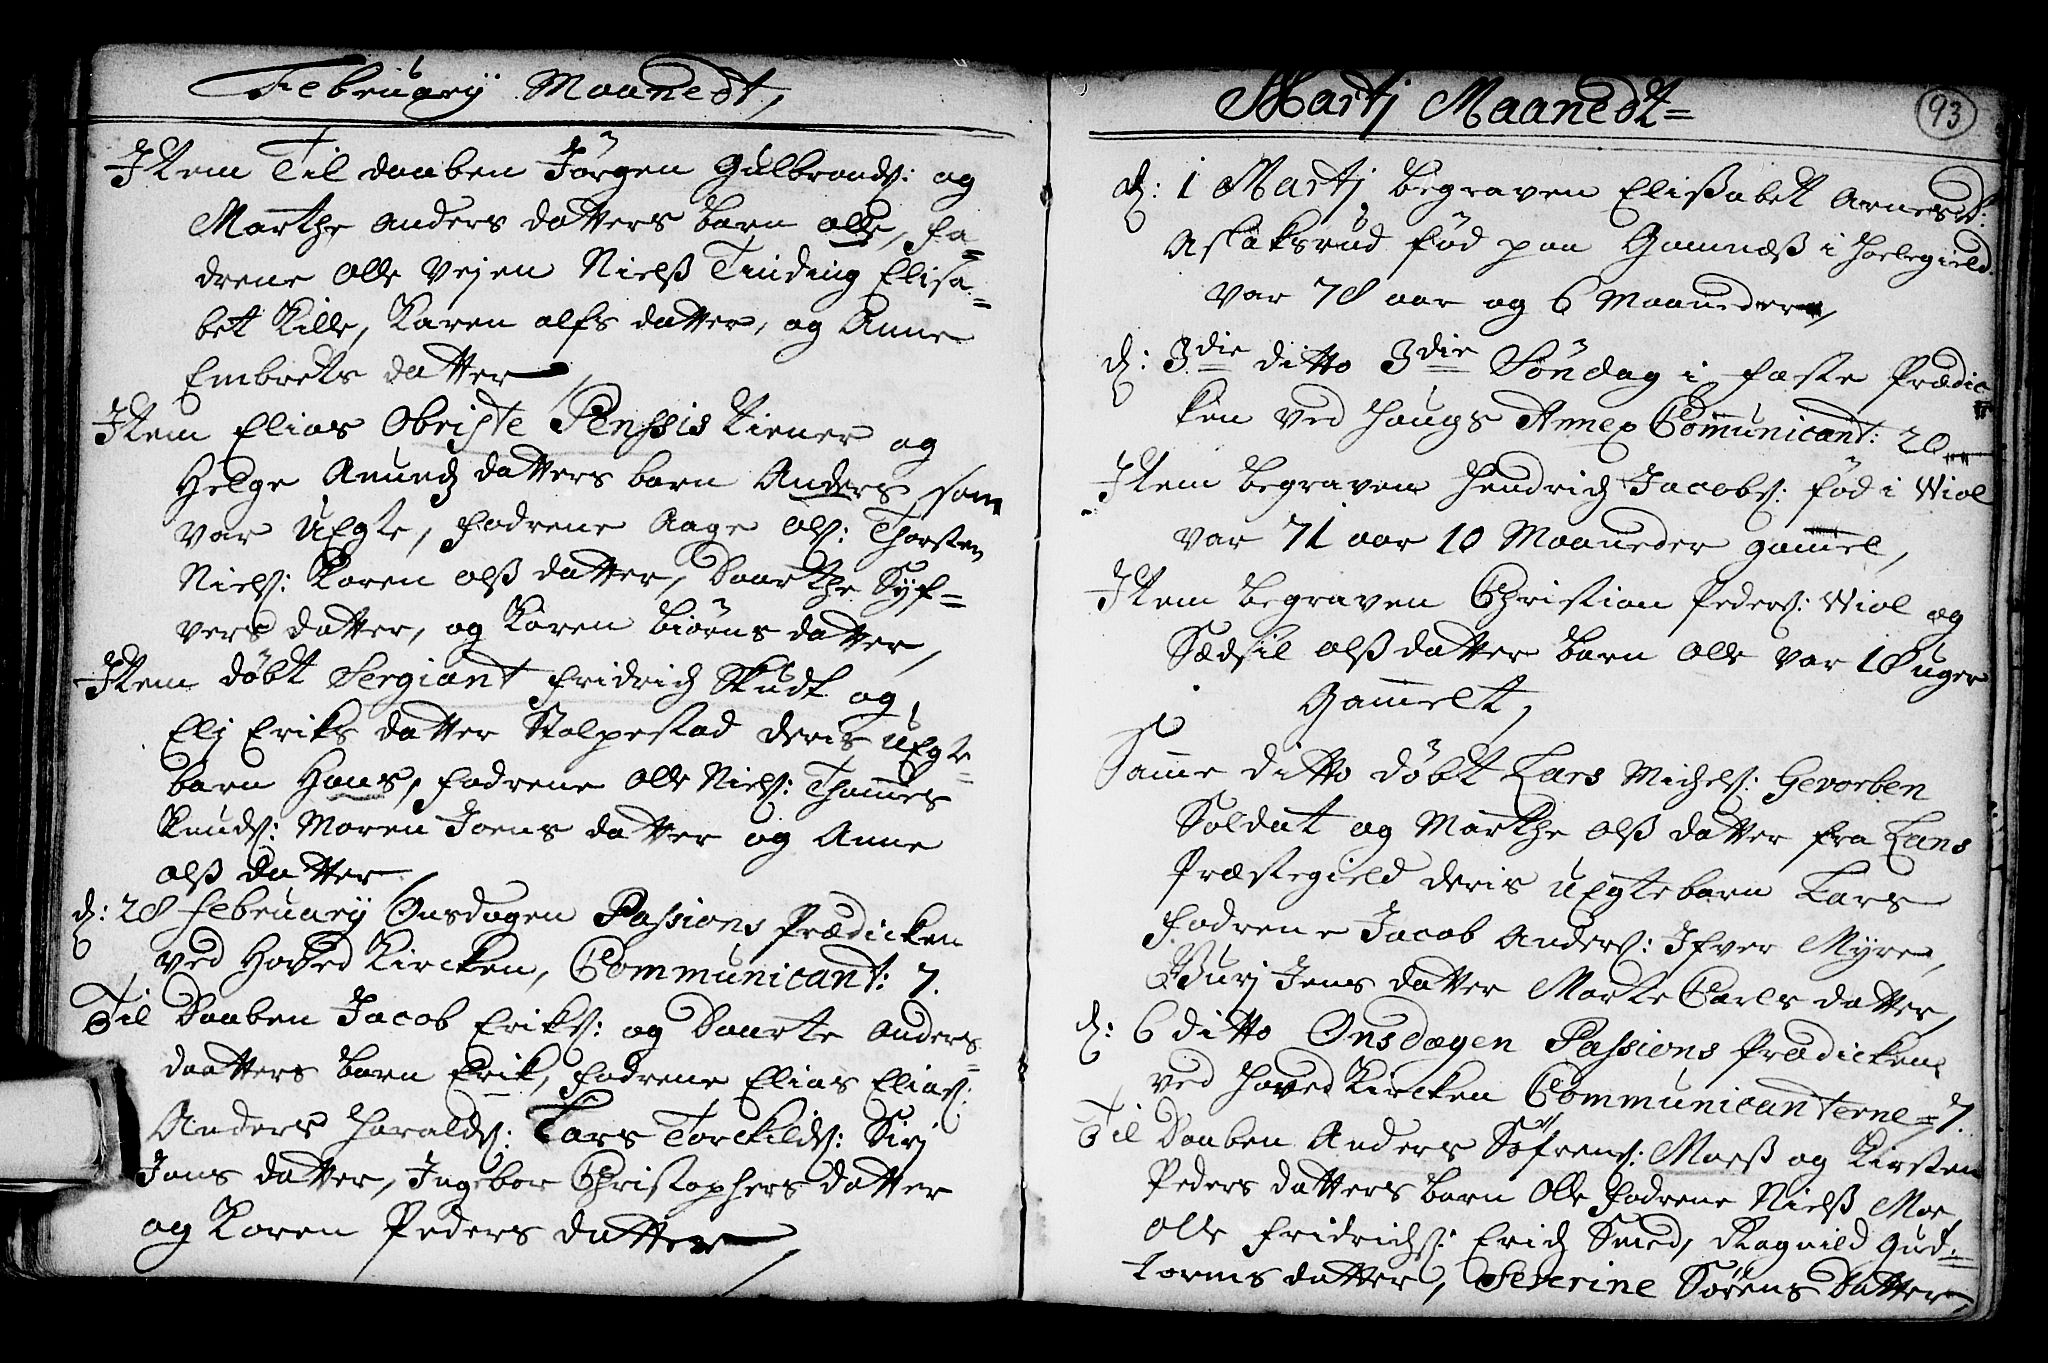 February Maanedt,
Item Til daaben Jörgen Gulbrands: og
Marthe Anders datters barn Olle, fa=
drene Olle Vejen Nielß Tinding Elisa=
bet Kille, Karen Alfs datter, og Anne
Embrets datter
Item Elias Obriste Penssis Tiener og
Helge Amunds datters barn Anders som
var uEgte, fadrene Aage Ols: Thorsten
Niels: Karen Olß datter, Daarthe Syf=
vers datter, og Karen Biörns datter,
Item döbt Sergiant Fridrich Skudt og
Elj Eriks datter Stalpestad deris uEgte
barn Hans, fadrene Olle Niels: Thommes
Knuds: Maren Joens datter og Anne
Olß datter
d: 28 February Onsdagen Passions Prædicken
ved Hoved Kircken, Communicant: 7.
Til Daaben Jacob Eriks: og Daarte Anders=
daatters barn Erik, fadrene Elias Elias:
Anders Haralds: Lars Torckilds: Sirj
Jans datter, Ingebor Christophers datter
og Karen Peders datter,
Martj Maanedt=
93
d: 1 Martj begraven Elißabet Arnesdt:
Aslaksrud fød paa Gamnæß i Holegield
var 78 aar og 6 Maaneder,
d: 3die ditto 3die Söndag i faste Prædic=
ken ved Haugs Annex Communicant: 20
Item begraven Hendrich Jacobs: född i Wiol
var 71 aar 10 Maaneder gammel,
Item begraven Christian Peders: Wiol og
Sædsil Olß datter barn Olle var 18 uger
Gammelt,
Samme ditto döbt Lars Michels: Gevorben
Soldat og Marthe Olß datter fra Lans
Præstegield deris uEgtebarn Lars
fadrene Jacob Anders: Ifver Myre,
Burj Jens datter Marte Carls datter,
d: 6 ditto Onsdagen Passions Prædicken
ved Hoved Kircken Communicanterne = 7.
Til Daaben Anders Söfrens: Moeß og Kirsten
Peders datters barn Olle fadrene Nielß Moe
Olle Fridrichs: Erich Smed, Ragnild Gud=
torms datter, Severine Sörens datter,